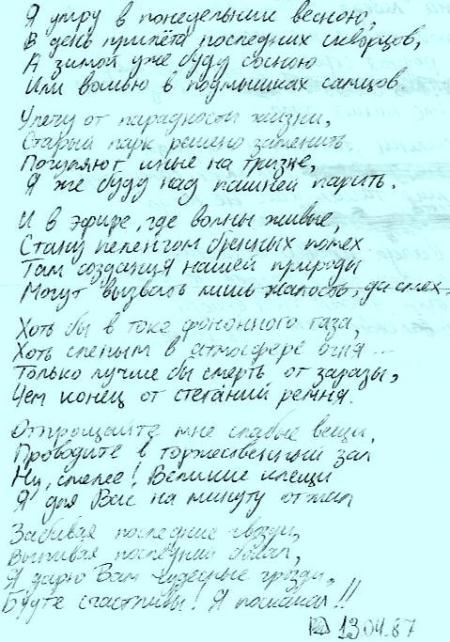 Я умру в понедельник весною,
В день прилёта последних скворцов,
А зимой уже буду сосною
Или вошью в подмышках самцов.
Улечу от парадности жизни,
Старый парк решено заменить
Погуляют иные на тризне,
Я же буду над пашней парить.
И в эфире, где волны живые,
Стану пеленгом бренных помех.
Там создания нашей природы
Могут вызвать лишь жалость, да смех.
Хоть бы в токе фононного газа,
Хоть слепым в атмосфере огня...
Только лучше бы смерть от заразы,
Чем конец от стеганий ремня.
Отпрощайте мне слабые вещи,
Проводите в торжественный зал
Ну, смелее! Великие клещи
Я для Вас на минуту отжал
Забивая последние гвозди,
Выпивая последний бокал,
Я дарю Вам чудесные грозди,
Будте счастливы! Я поскакал!!
13.04.87